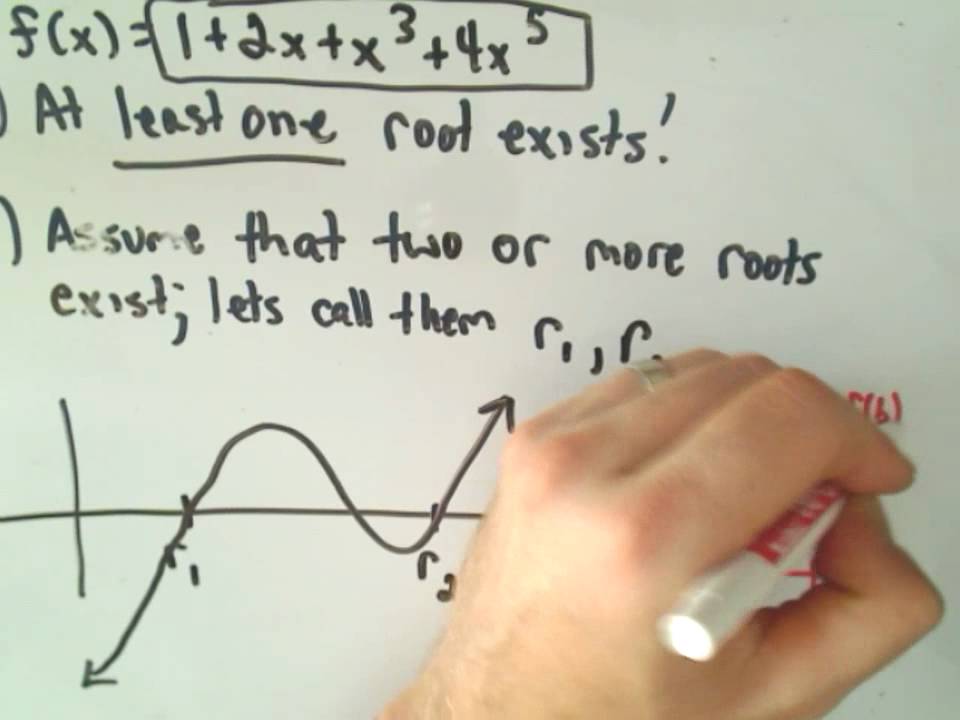 f(x)=1+2x+x³+4x⁵
) At least one root exists!
) Assume that two or more roots
exist; lets call them r₁, r
(b)
r₁
r₂